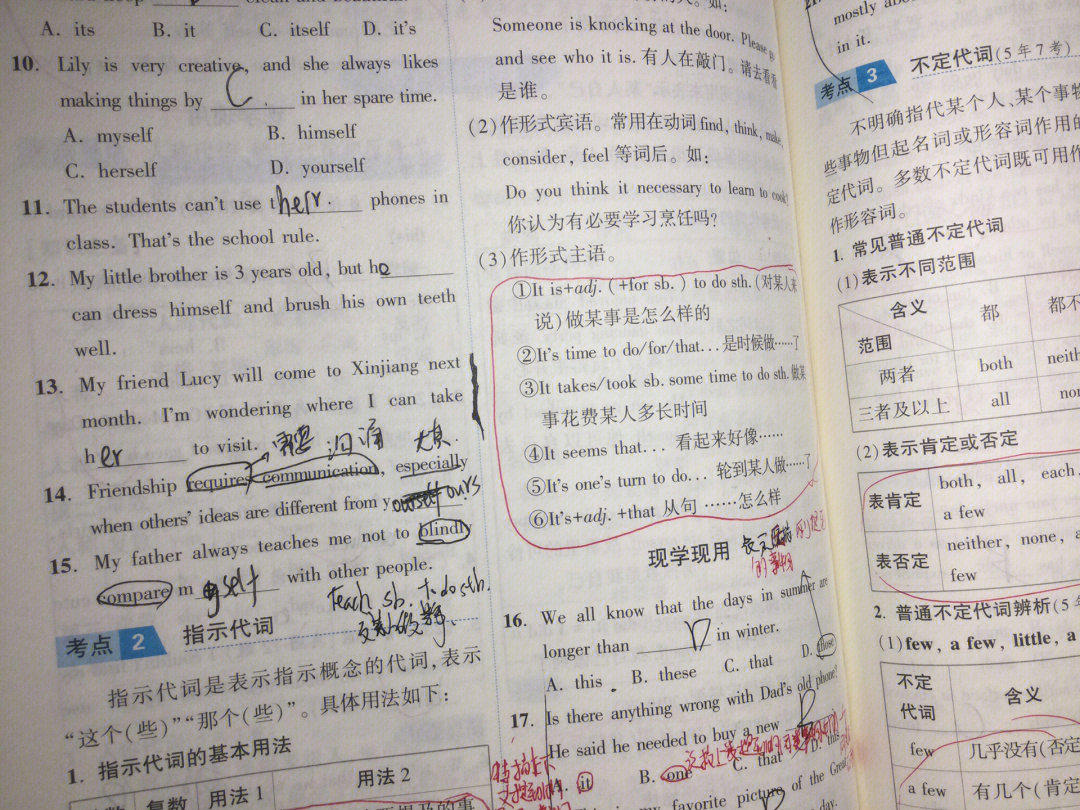 A. its B. it C. itself D. it's
10. Lily is very creative, and she always likes
making things by C. in her spare time.
A. myself B. himself
C. herself D. yourself
11. The students can't use their. phones in
class. That's the school rule.
12. My little brother is 3 years old, but he
can dress himself and brush his own teeth
well.
13. My friend Lucy will come to Xinjiang next
month. I'm wondering where I can take
her to visit.
需要 沟通 尤其.
14. Friendship requires communication, especially
when others' ideas are different from yours
15. My father always teaches me not to blindly
compare myself with other people.
teach sb. to do sth.
考点 2 指示代词
指示代词是表示指示概念的代词,表示
“这个(些)”“那个(些)”。具体用法如下:
1. 指示代词的基本用法
复数 用法 1 用法 2
Someone is knocking at the door. Please go
and see who it is. 有人在敲门。请去看看
是谁。
(2)作形式宾语。常用在动词find, think, make,
consider, feel 等词后。如:
Do you think it necessary to learn to cook?
你认为有必要学习烹饪吗?
(3)作形式主语。
①It is+adj. (+for sb. ) to do sth. (对某人来
说)做某事是怎么样的
②It's time to do/for/that... 是时候做……了
③It takes/took sb. some time to do sth. 做某
事花费某人多长时间
④It seems that... 看起来好像……
⑤It's one's turn to do... 轮到某人做……了
⑥It's+adj. +that 从句 ……怎么样
现学现用
16. We all know that the days in summer are
longer than D in winter.
A. this B. these C. that D. those
17. Is there anything wrong with Dad's old phone?
He said he needed to buy a new B
A. it B. one C. that D. this
my favorite picture of the Great
day.
mostly
in it.
考点 3 不定代词(5年7考)
不明确指代某个人、某个事物
些事物但起名词或形容词作用的
定代词。多数不定代词既可用作
作形容词。
1. 常见普通不定代词
(1)表示不同范围
含义 都 都不
范围
两者 both
三者及以上 all
(2)表示肯定或否定
表肯定 both, all, each
a few
表否定 neither, none, a
few
2. 普通不定代词辨析(5年
(1)few, a few, little, a
不定
代词 含义
few 几乎没有(否定
a few 有几个(肯定